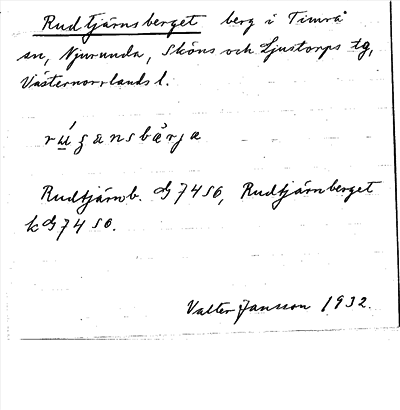 Rudtjärnsberget berg i Timrå
sn, Njurunda, Sköns och Ljustorps tg,
Västernorrlands l.
Rudtjärnb. G 74 SO, Rudtjärnberget
k G 74 SO.
Valter Jansson 1932.